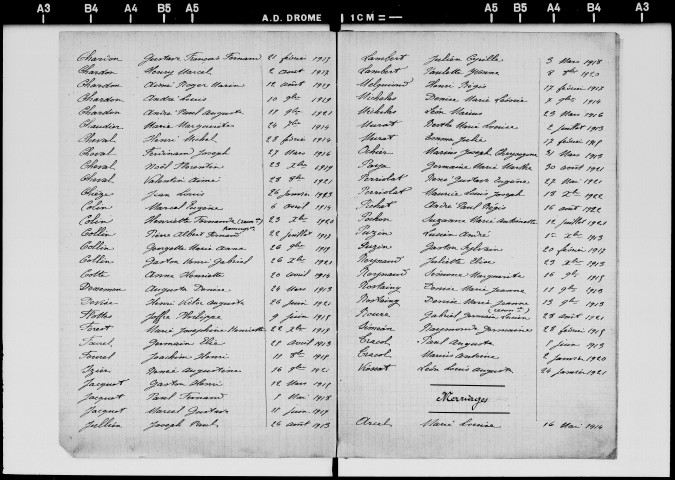 A3 B4 A4 B5 A5 A.D. DROME 1 CM = A5 B5 A4 B4 A3
Chardon Gustave François Fernand 21 février 1917
Chardon Henry Marcel 2 août 1917
Chardon Aimé Roger Marin 12 août 1919
Chardon André Louis 10 9bre 1919
Chardon André Paul Auguste 11 9bre 1921
Chaudier Marie Marguerite 24 1914
Cheval Henri Michel 28 février 1914
Cheval Ferdinand Joseph 27 Mars 1916
Cheval Noël Florentin 23 Xbre 1919
Cheval Valentin Aimé 28 8bre 1921
Chèze Jean Louis 26 janvier 1923
Colin Marcel Eugène 6 avril 1914
Colin Henriette Fernande 23 Xbre 1920
Collin Pierre Albert Fernand 22 juillet 1917
Collin Georgette Marie Anna 26 9bre 1919
Collin Gaston Henri Gabriel 26 Xbre 1921
Cotte Anna Henriette 20 avril 1914
Auguste Denise 24 Mars 1913
Henri Victor Auguste 26 juin 1921
Joffre Philippe 9 juin 1915
Marie Joséphine Henriette 22 Xbre 1917
Fourel Germain Elie 21 avril 1913
Fourel Joachim Henri 11 8bre 1915
Augustine 16 9bre 1921
Jacquot Gaston Henri 12 Mars 1915
Jacquot Paul Fernand 1 Mai 1918
Jacquot Marcel Gustave 11 juin 1919
Jullien Joseph Paul 26 août 1913
Lambert Julien Cyrille 3 Mars 1918
Lambert Paulette Yvonne 8 1920
Henri Régis 17 février 1917
Michelas Denise Marie Louise 7 9bre 1914
Michelas Léon Marius 23 Mars 1916
Murat Berthe Marie Louise 2 juillet 1913
Murat 17 février 1917
Marius Joseph 31 Mars 1913
Germaine Marie Marthe 30 août 1921
Persiolat René Gustave Eugène 27 Mai 1921
Persiolat Maurice Louis Joseph 18 Xbre 1922
Pichat André Paul Régis 16 août 1922
Pochon Suzanne Marie Antoinette 12 juillet 1921
Puzin Lucien André 1913
Puzin Gaston Sylvain 20 février 1917
Reynaud Juliette Elise 23 Xbre 1913
Reynaud Simone Marguerite 16 9bre 1915
Rostaing Denise Marie Jeanne 11 9bre 1913
Rostaing Denise Marie Jeanne 13 9bre 1913
Gabriel Germain Lucien 28 août 1921
Siméan Raymonde Germaine 28 février 1915
Tracol Paul Auguste 1 juin 1913
Tracol Marius Antoine 2 janvier 1920
Vossat Léon Louis Auguste 24 janvier 1921
Marriages
Marie Louise 16 Mai 1914